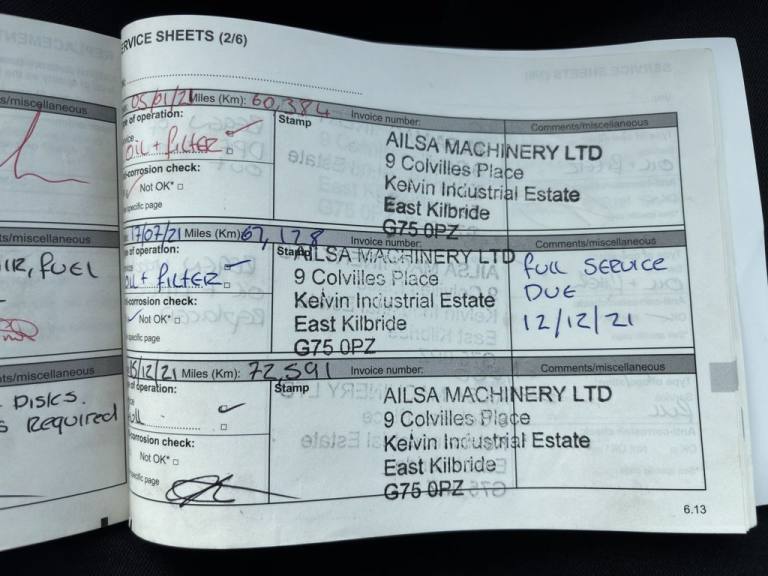 ERVICE SHEETS (2/6)
s/miscellaneous
05/01/21 Miles (Km): 60,384 Invoice number: Comments/miscellaneous
e of operation: Stamp
OIL + FILTER
-corrosion check:
Not OK*
specific page
AILSA MACHINERY LTD
9 Colvilles Place
Kelvin Industrial Estate
East Kilbride
G75 0PZ
ts/miscellaneous
IR, FUEL
17/07/21 Miles (Km): 67,128 Invoice number: Comments/miscellaneous
of operation: Stamp
OIL + FILTER
-corrosion check:
Not OK*
specific page
AILSA MACHINERY LTD
9 Colvilles Place
Kelvin Industrial Estate
East Kilbride
G75 0PZ
FULL SERVICE
DUE
12/12/21
ts/miscellaneous
DISKS.
S REQUIRED
15/12/21 Miles (Km): 72,591 Invoice number: Comments/miscellaneous
of operation: Stamp
FULL
-corrosion check:
Not OK*
specific page
AILSA MACHINERY LTD
9 Colvilles Place
Kelvin Industrial Estate
East Kilbride
G75 0PZ
6.13